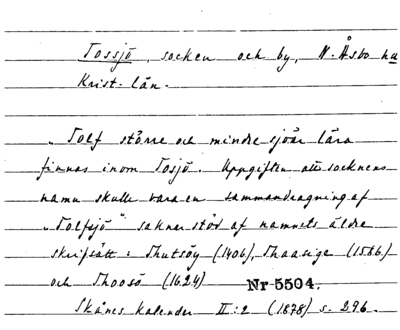 Tossjö, socken och by, N. Åsbo hu
Krist. län.
„Tolf större och mindre sjöar lära
finnas inom Tosjö. Uppgiften att socknens
namn skulle vara en sammandragning af
„Tolfsjö" saknar stöd af namnets äldre
skrifsätt: Thutsöy (1406), Thaasige (1566)
och Thoosö (1624)
Nr 5504.
Skånes Kalender II:2 (1878) s. 296.